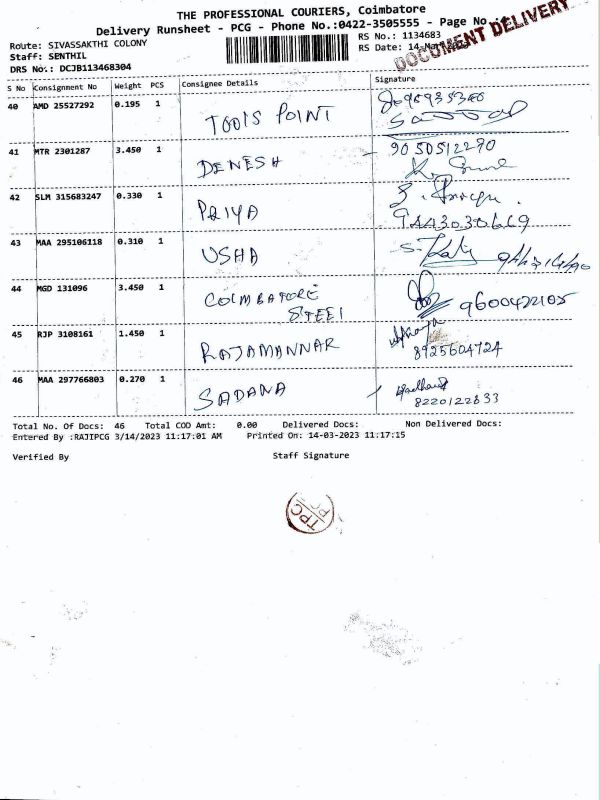 THE PROFESSIONAL COURIERS, Coimbatore
Delivery Runsheet - PCG - Phone No.:0422-3505555 - Page No.
DOCUMENT DELIVERY
Route: SIVASSAKTHI COLONY
RS No.: 1134683
Staff: SENTHIL
RS Date: 14-Mar-2023
DRS No.: DCJB113468304
S No Consignment No Weight PCS Consignee Details Signature
40 AMD 25527292 0.195 1 TOOLS POINT
41 MTR 2301287 3.450 1 DENESH 9050512290
42 SLM 315683247 0.330 1 PRIYA
9443030669
43 MAA 295106118 0.310 1 USHA
44 MGD 131096 3.450 1 COIMBATORE 9600422105
STEEL
45 RJP 3108161 1.450 1 RAJAMANNAR
8925604724
46 MAA 297766803 0.270 1 SADANA
8220122833
Total No. Of Docs: 46 Total COD Amt: 0.00 Delivered Docs: Non Delivered Docs:
Entered By :RAJIPCG 3/14/2023 11:17:01 AM Printed On: 14-03-2023 11:17:15
Verified By Staff Signature
TPC